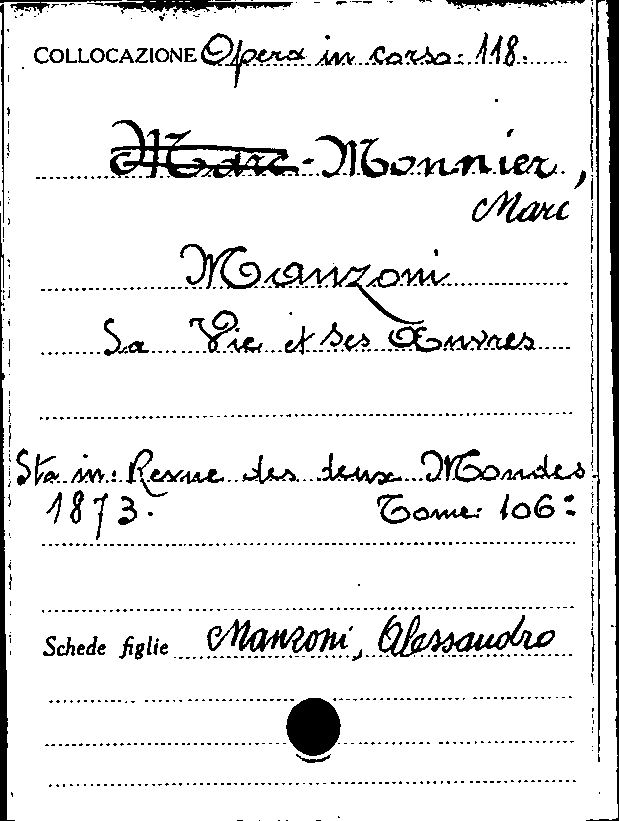 COLLOCAZIONE Opera in corso. 118.
Marc-Monnier,
Marc
Manzoni
Sa Vie et Ses Œuvres
Sta in: Revue des deux Mondes
1873. Tome 106:
Schede figlie Manzoni, Alessandro